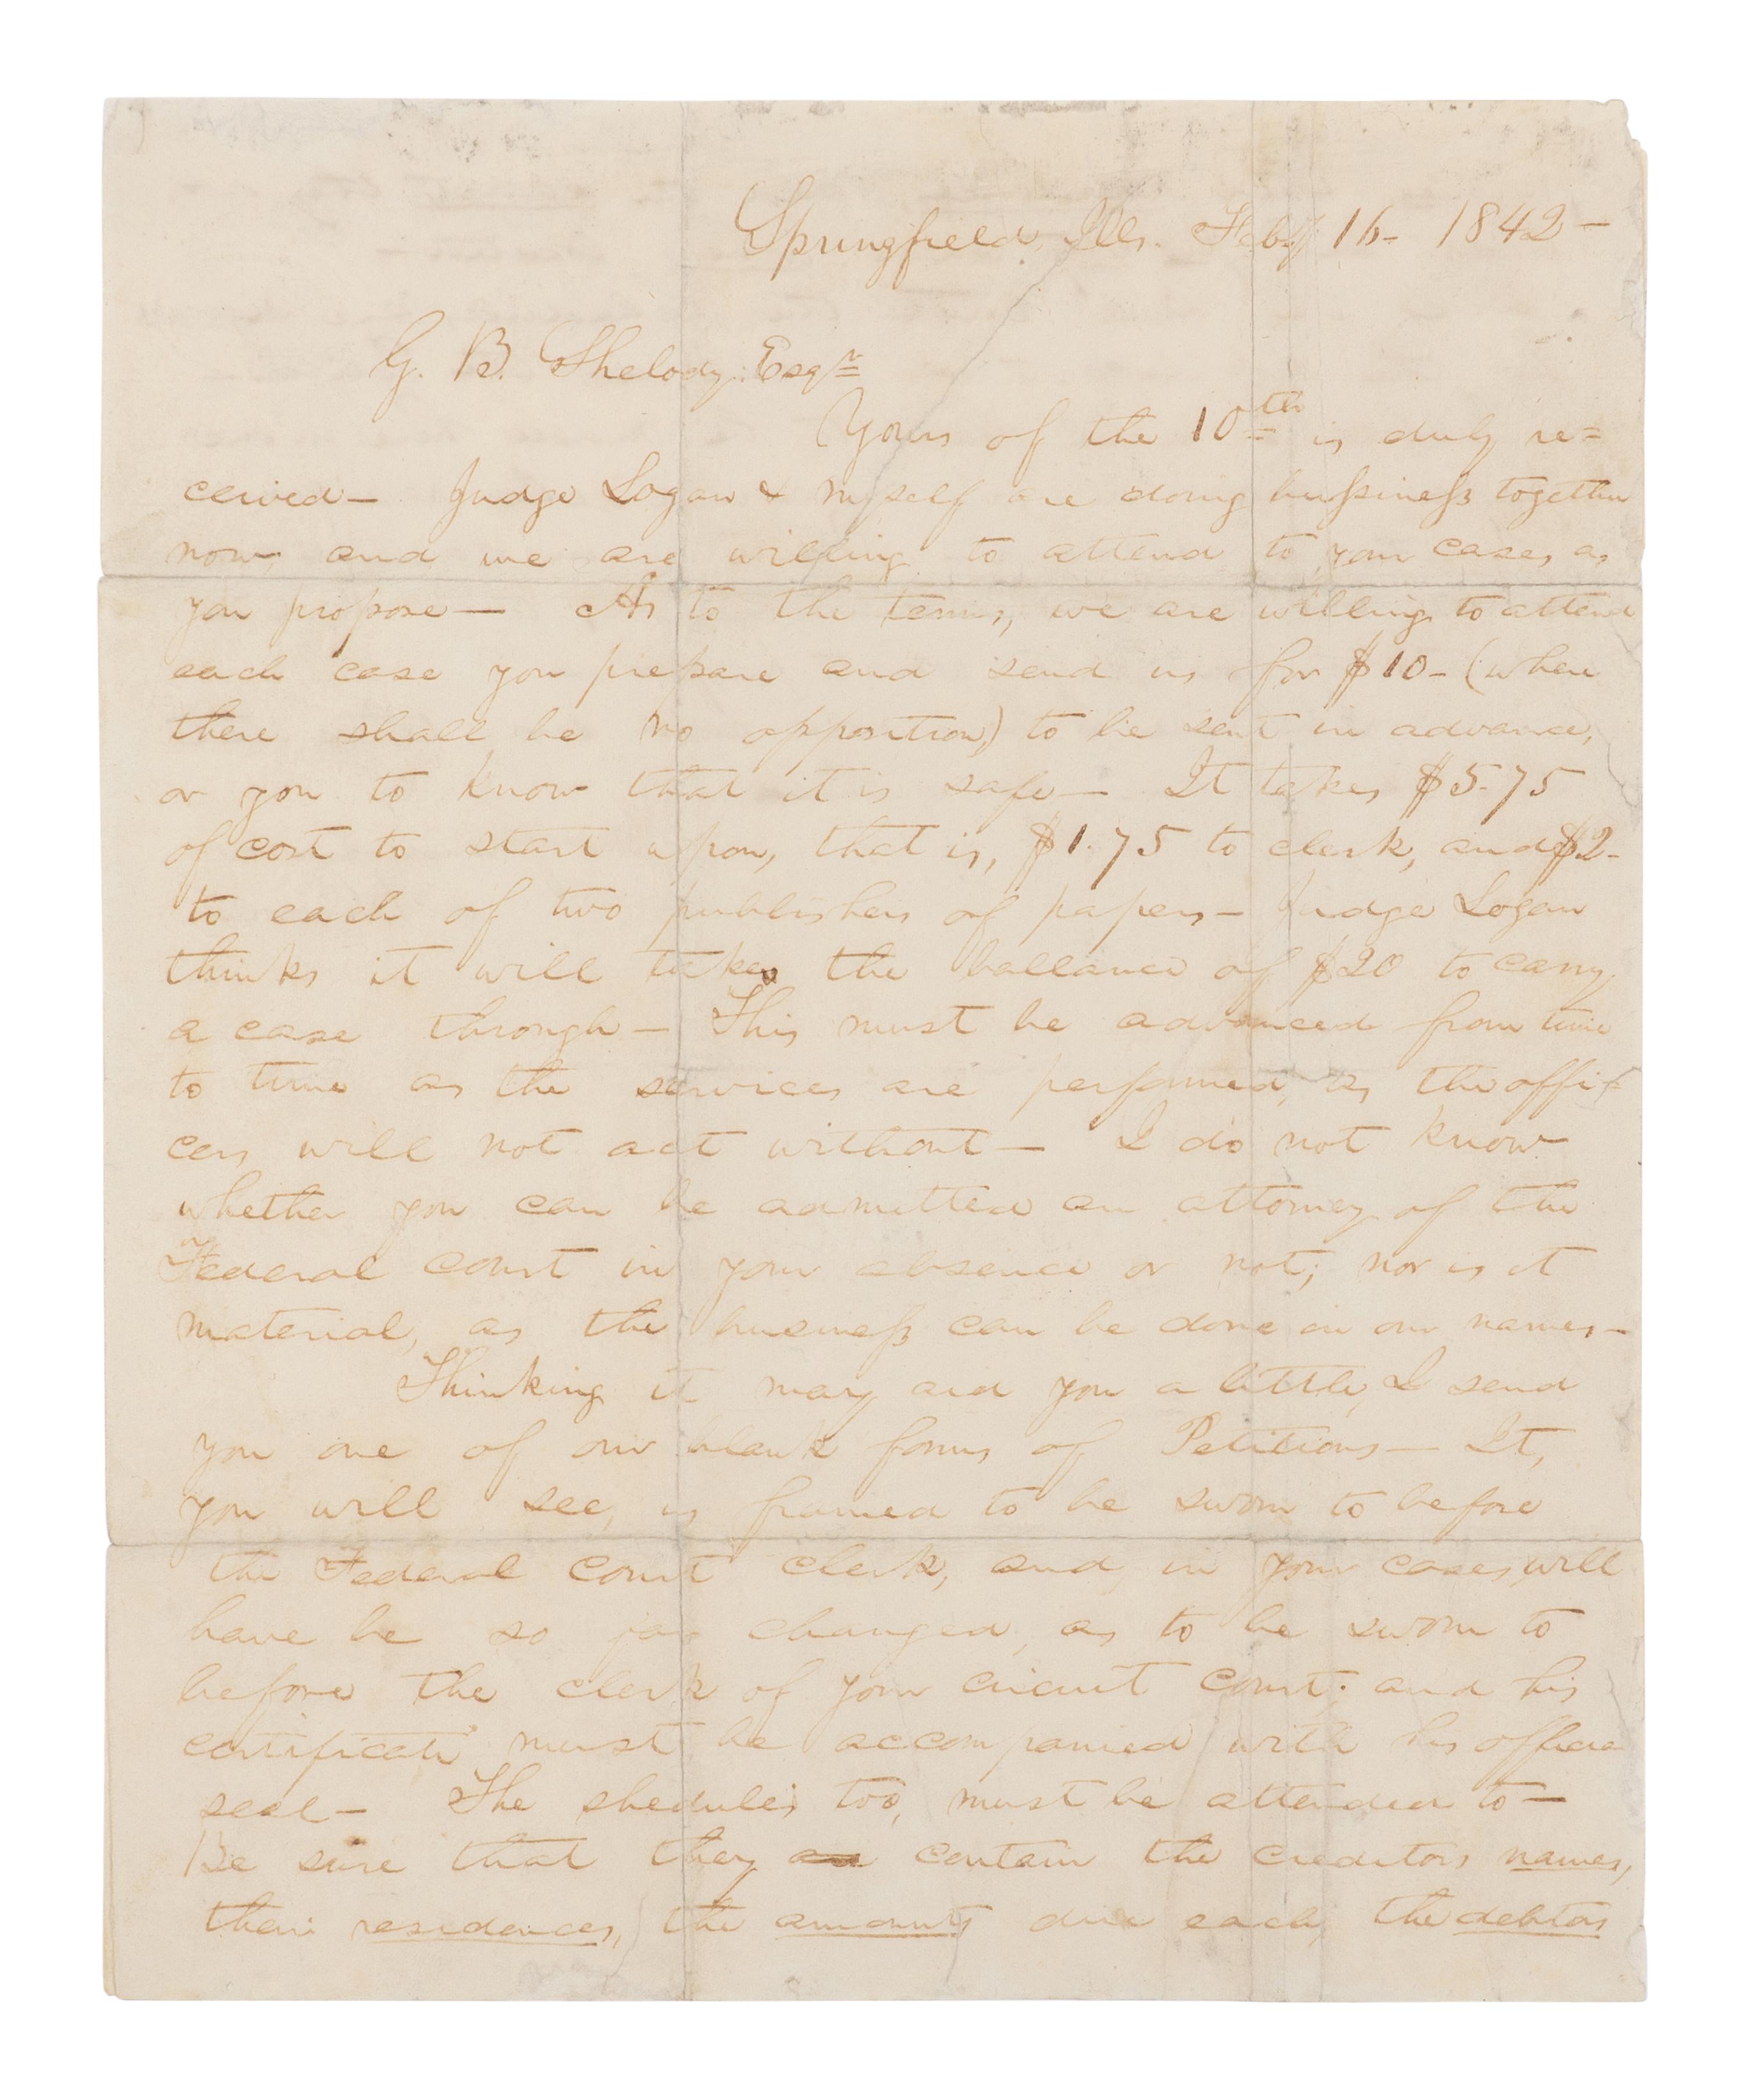 Springfield, Ills. Feby 16- 1842-
G. B. Shelody, Esqr
Yours of the 10th is duly re=
ceived- Judge Logan & myself are doing bussiness together
now, and we are willing to attend to your cases as
you propose- As to the terms, we are willing to attend
each case you prepare and send us for $10- (when
there shall be no opposition,) to be sent in advance,
or you to know that it is safe- It takes $5-75
of cost to start upon, that is, $1.75 to clerk, and $2-
to each of two publishers of papers- Judge Logan
thinks it will take the ballance of $20 to carry
a case through- This must be advanced from time
to time as the services are performed, as the offi=
cers will not act without- I do not know
whether you can be admitted an attorney of the
Federal court in your absence or not; nor is it
material, as the business can be done in our names-
Thinking it may aid you a little, I send
you one of our blank forms of Petitions- It,
you will see, is framed to be sworn to before
the Federal court clerk, and, in your cases, will
have be so far changed, as to be sworn to
before the clerk of your circuit court; and his
certificate must be accompanied with his official
seal- The shedules too, must be attended to-
Be sure that they contain the creditors names,
their residences, the amounts due each, the debtors